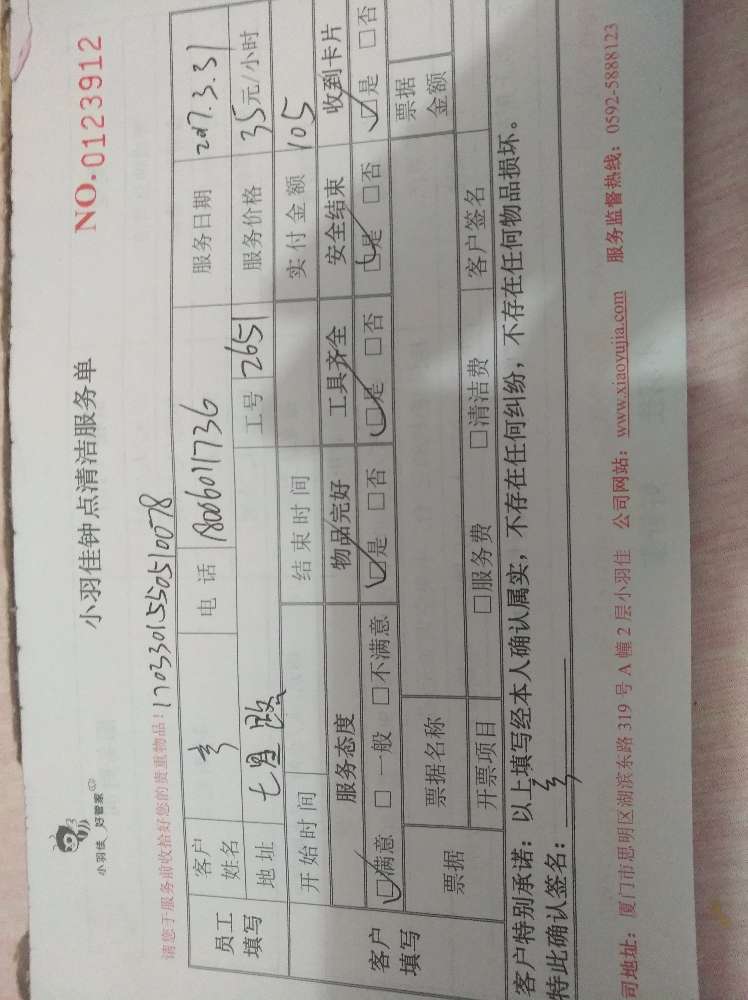 小羽佳 好管家
小羽佳钟点清洁服务单
NO.0123912
请您于服务前收拾好您的贵重物品! 1703301550510078
员工填写 客户姓名 电话 服务日期 2017.3.31
地址 七星路 工号 2651 服务价格 35元/小时
开始时间 结束时间 实付金额 105
客户填写 服务态度 物品完好 工具齐全 安全结束 收到卡片
☑满意 □一般 □不满意 ☑是 □否 ☑是 □否 ☑是 □否 ☑是 □否
票据 票据名称 票据金额
开票项目 □服务费 □清洁费 客户签名
客户特别承诺：以上填写经本人确认属实，不存在任何纠纷，不存在任何物品损坏。
特此确认签名：
司地址：厦门市思明区湖滨东路 319 号 A 幢 2 层小羽佳 公司网站：www.xiaoyujia.com 服务监督热线：0592-5888123